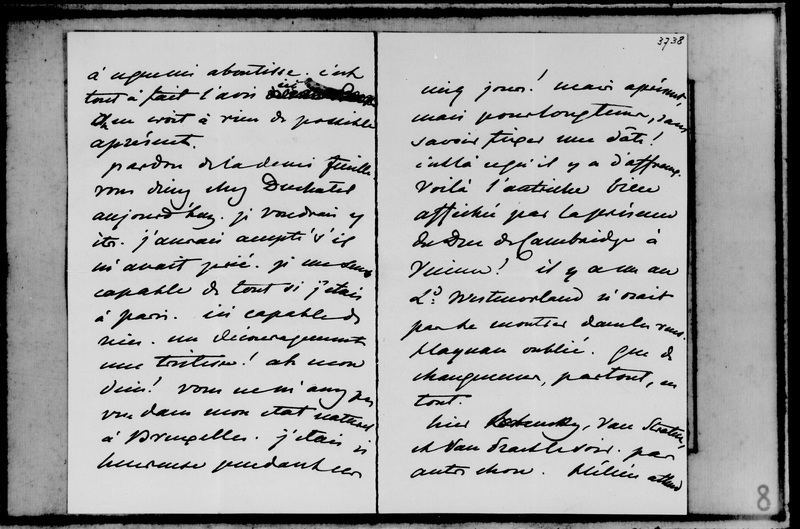 à ce qu'on aboutisse. c'est
tout à fait l'avis ici
then croit à rien de possible
àprésent.
pardon de la demi feuille.
vous dinez chez Duchatel
aujourd'huy. je voudrais y
être. j'aurais accepté s'il
m'avait prié. je me sens
capable de tout si j'étais
à paris. ici capable de
rien. un découragement
une tristesse! ah mon
dieu! vous ne m'avez pas
vue dans mon état naturel
à Bruxelles. j'étais si
heureuse pendant ces
3738
cinq jours! mais àprésent,
mais pour longtems, sans
savoir fixer une date!
c'est là ce qu'il y a d'affreux.
Voilà l'autriche bien
affichée par la présence
du Duc de Cambridge à
Vienne! il y a un an
Ld Westmorland n'osait
pas se montrer dans les rues.
Haynau oublié. que de
changemens, partout, en
tout.
hier Van Straten,
et Van Praet le soir. pas
autre chose. Hélène attend
8